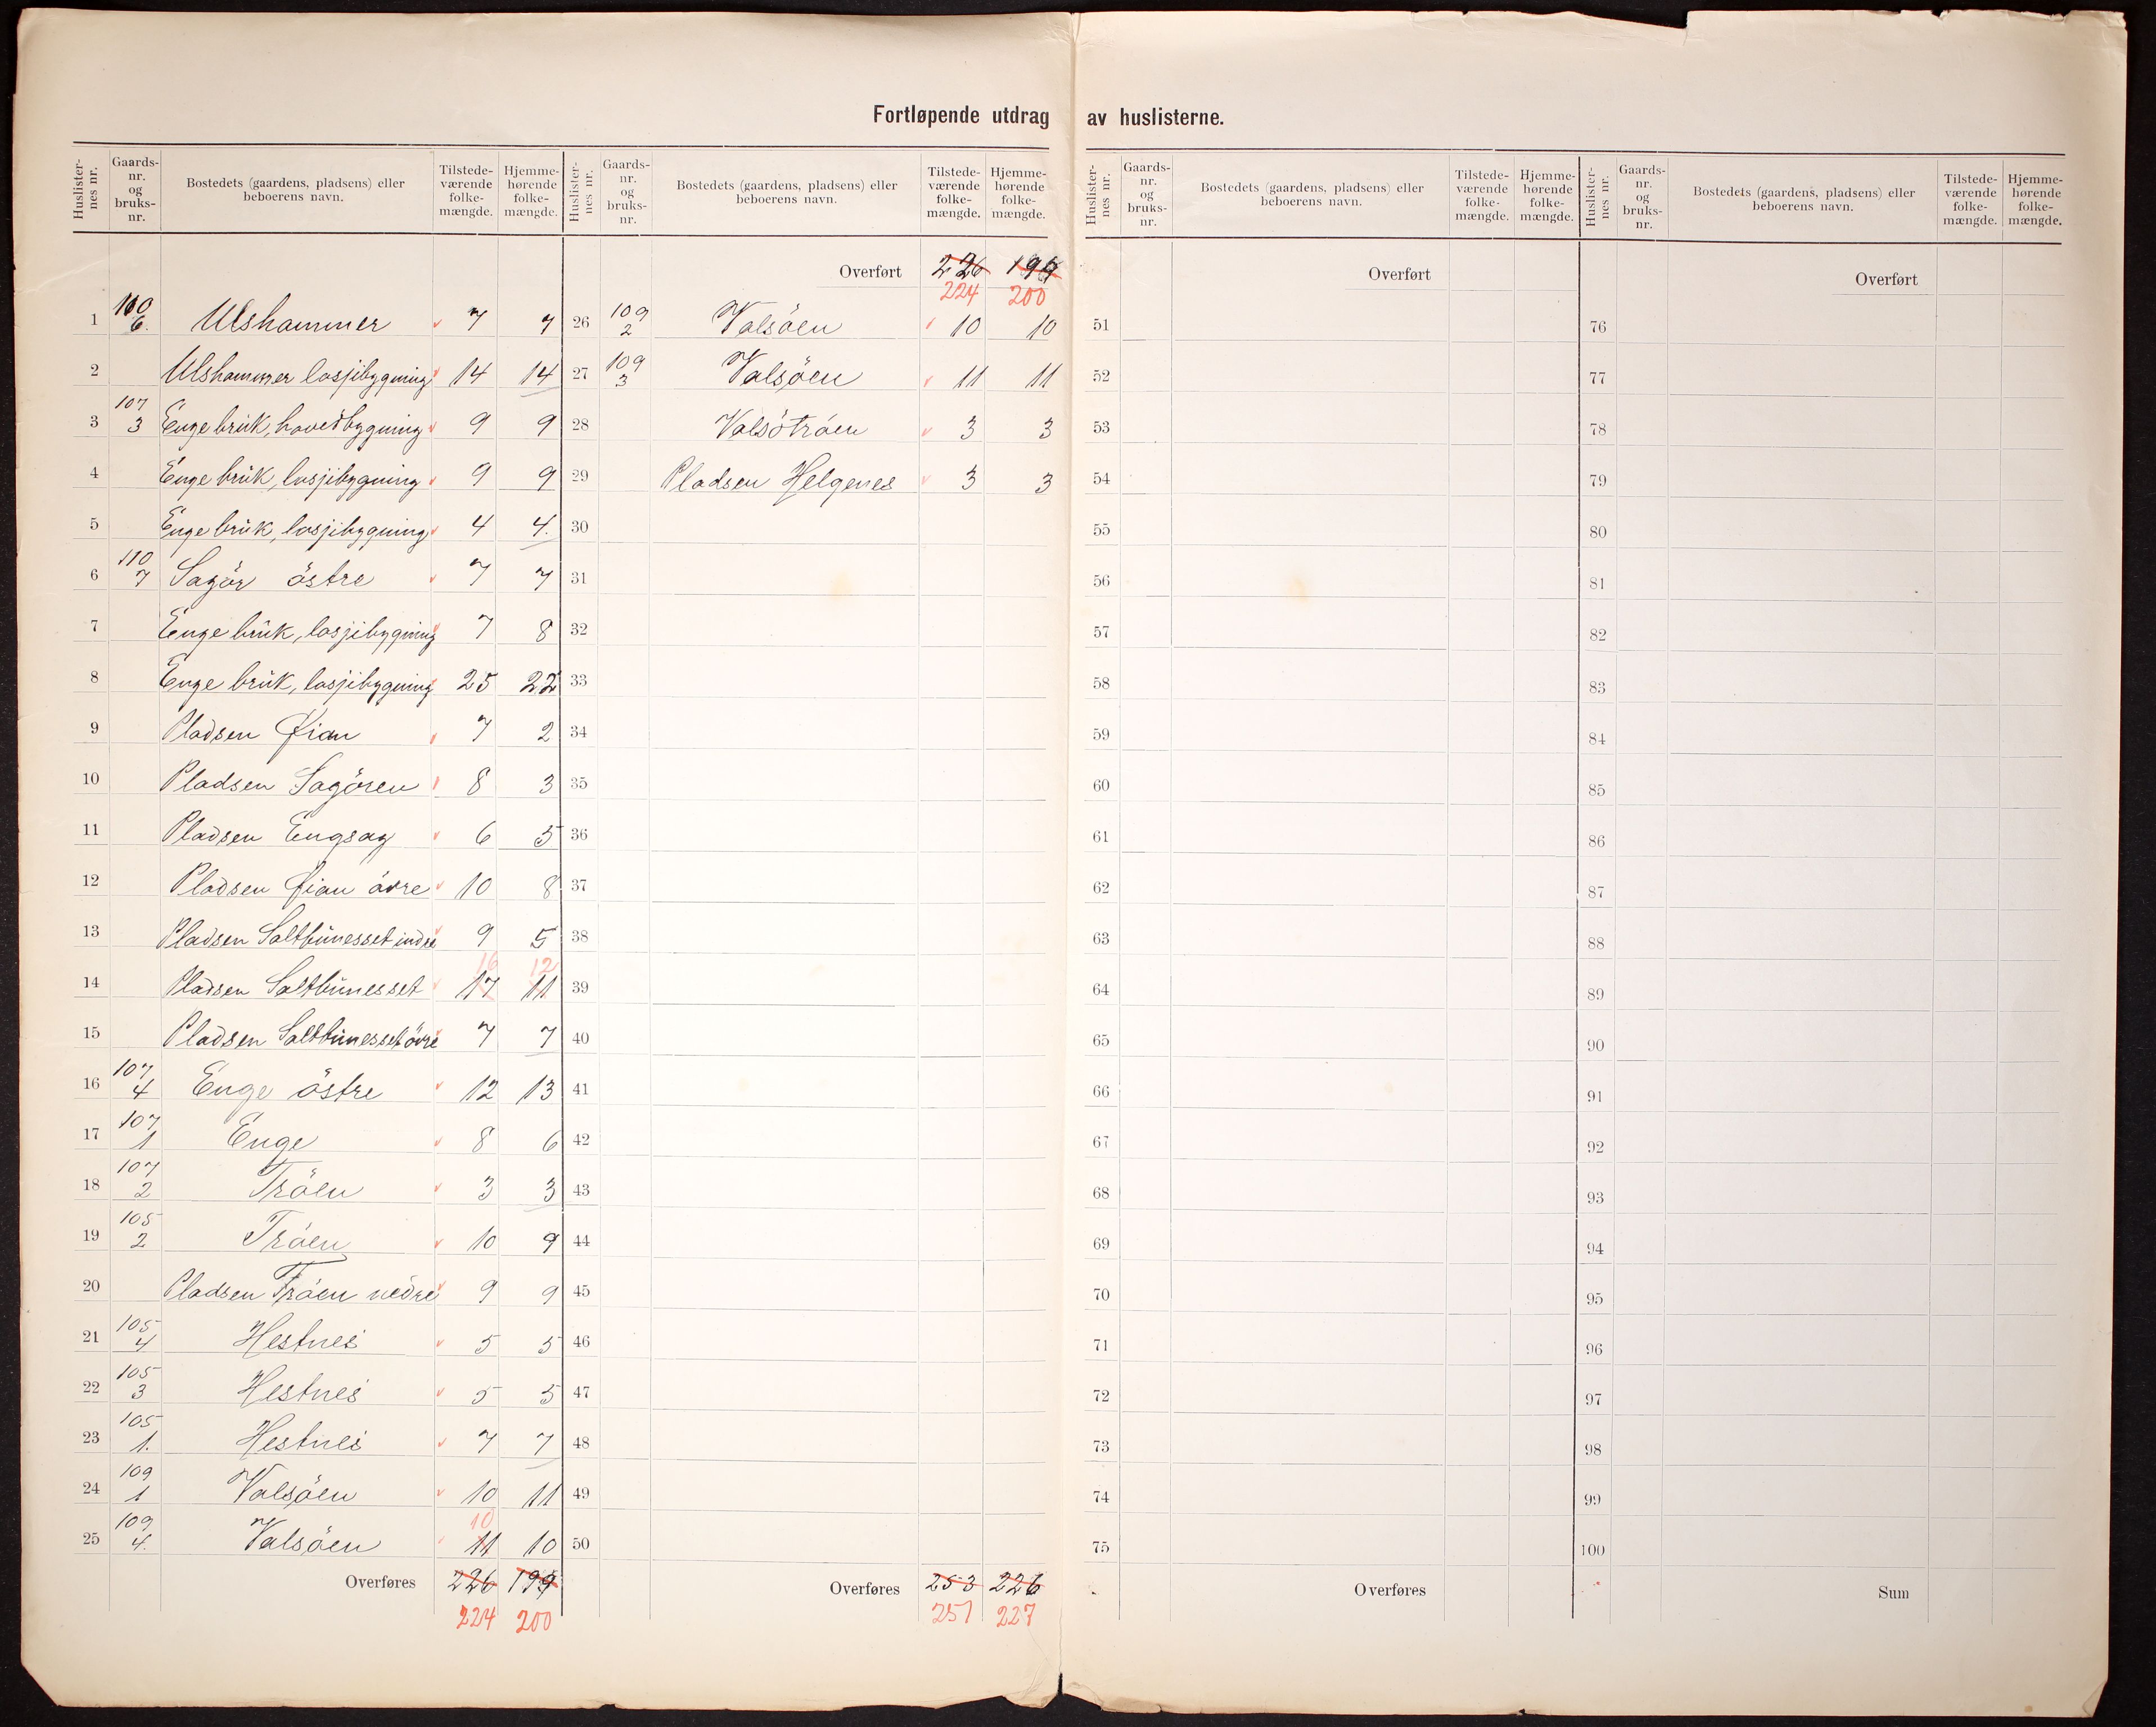 Fortløpende utdrag av huslisterne.
Huslisternes nr. | Gaards-nr. og bruks-nr. | Bostedets (gaardens, pladsens) eller beboerens navn. | Tilstedeværende folkemængde. | Hjemmehørende folkemængde.
1 110 6. Ulshammer 7 7
2 Ulshammer losjibygning 14 14
3 107 3 Enge brük, hovedbygning 9 9
4 Enge brük, losjibygning 9 9
5 Enge brük, losjibygning 4 4.
6 110 7 Sagör östre 7 7
7 Enge brük, losjibygning 7 8
8 Enge brük, losjibygning 25 22
9 Pladsen Øian 7 2
10 Pladsen Sagören 8 3
11 Pladsen Engsag 6 5
12 Pladsen Øian övre 10 8
13 Pladsen Saltbünesset indre 9 5
16 12
14 Pladsen Saltbünesset 17 11
15 Pladsen Saltbünesset övre 7 7
16 107 4 Enge östre 12 13
17 107 1 Enge 8 6
18 107 2 Tröen 3 3
19 105 2 Tröen 10 9
20 Pladsen Tröen nedre 9 9
21 105 4 Hestnes 5 5
22 105 3 Hestnes 5 5
23 105 1. Hestnes 7 7
24 109 1 Valsöen 10 11
10
25 109 4. Valsöen 11 10
Overføres 226 199
224 200
Huslisternes nr. | Gaards-nr. og bruks-nr. | Bostedets (gaardens, pladsens) eller beboerens navn. | Tilstedeværende folkemængde. | Hjemmehørende folkemængde.
Overført 226 199
224 200
26 109 2 Valsöen 10 10
27 109 3 Valsöen 11 11
28 Valsötröen 3 3
29 Pladsen Helgenes 3 3
30
31
32
33
34
35
36
37
38
39
40
41
42
43
44
45
46
47
48
49
50
Overføres 253 226
251 227
Huslisternes nr. | Gaards-nr. og bruks-nr. | Bostedets (gaardens, pladsens) eller beboerens navn. | Tilstedeværende folkemængde. | Hjemmehørende folkemængde.
Overført
51
52
53
54
55
56
57
58
59
60
61
62
63
64
65
66
67
68
69
70
71
72
73
74
75
Overføres
Huslisternes nr. | Gaards-nr. og bruks-nr. | Bostedets (gaardens, pladsens) eller beboerens navn. | Tilstedeværende folkemængde. | Hjemmehørende folkemængde.
Overført
76
77
78
79
80
81
82
83
84
85
86
87
88
89
90
91
92
93
94
95
96
97
98
99
100
Sum